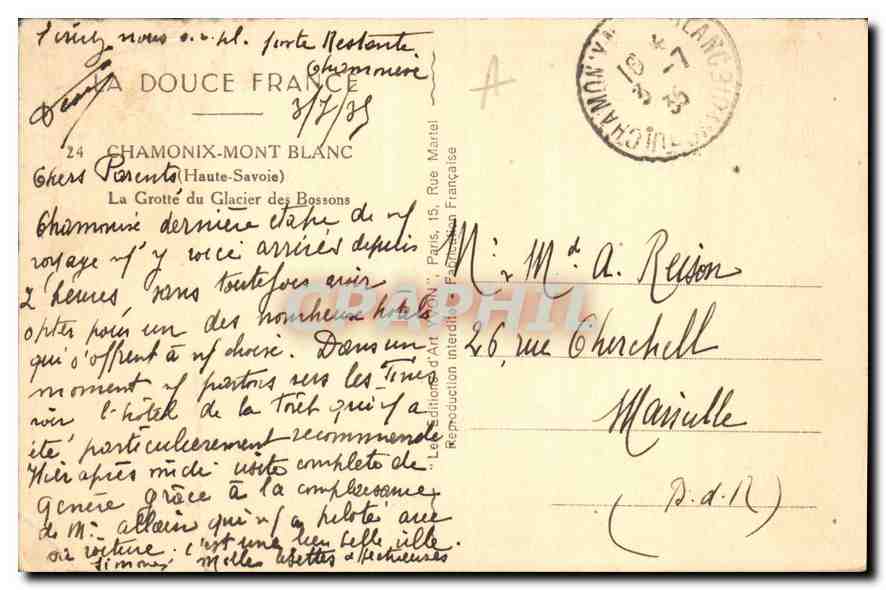 nous s.v.pl. poste Restante
Chamonix
LA DOUCE FRANCE
3/7/35
24 CHAMONIX-MONT BLANC
(Haute-Savoie)
La Grotte du Glacier des Bossons
Chers Parents
Chamonix dernière etape de n/
voyage n/ y voici arrivés depuis
2 heures sans toutefois avoir
opter pour un des nombreux hotels
qui s'offrent à n/ choix. Dans un
moment n/ partons vers les Tines
voir l'hôtel de la Forêt qui n/ a
été particulièrement recommandé
Hier après midi visite complète de
Genève grâce à la complaisance
de Mr. qui n/ a piloté avec
sa voiture. C'est une bien belle ville.
Simone Milles affectueuses
"Les Editions d'Art YVON", Paris, 15, Rue Martel
Reproduction interdite. Fabrication Française
A
CHAMONIX MONT BLANC
18
3 -7
35
HTE SAVOIE
Mr & Md A. Reison
26, rue Cherchell
Marseille
(B.d.R)
CPAPHIL